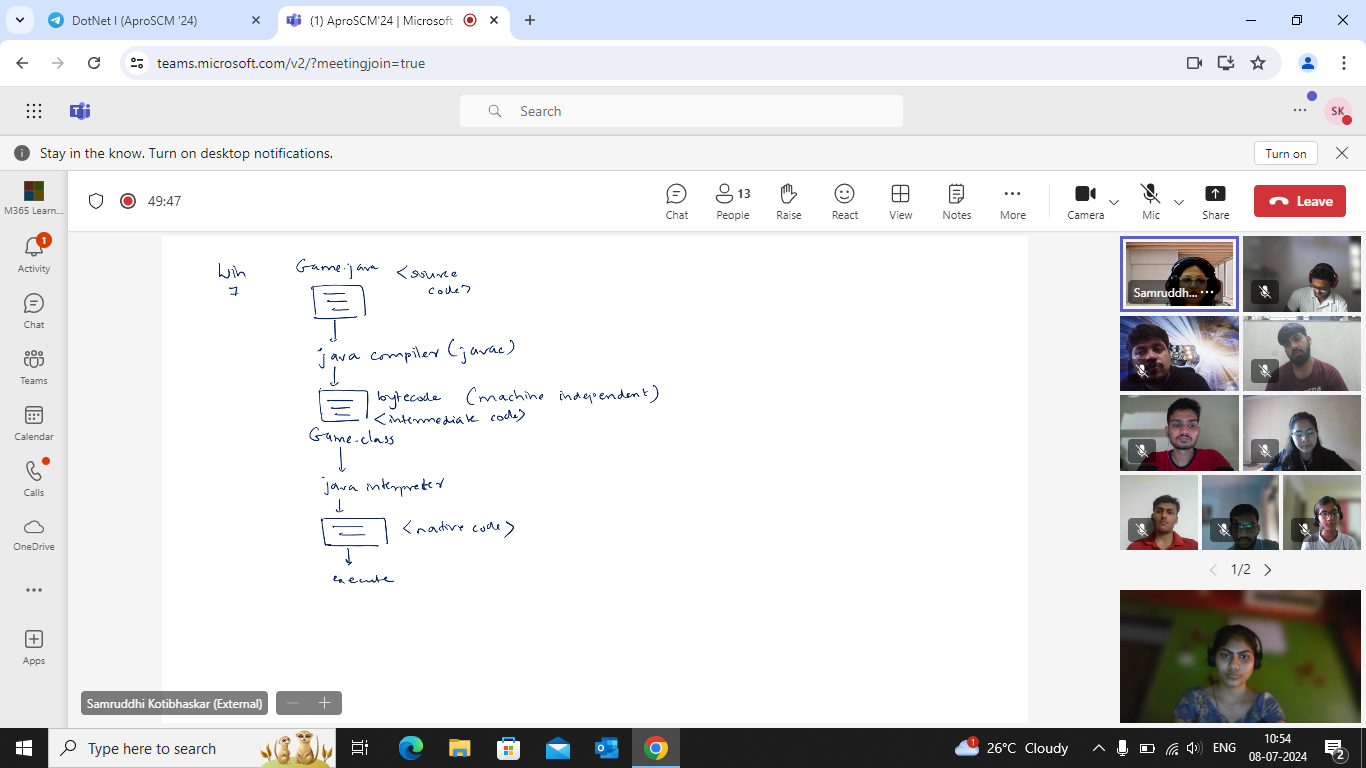 DotNet I (AproSCM '24)
(1) AproSCM'24 | Microsoft
teams.microsoft.com/v2/?meetingjoin=true
Search
SK
Stay in the know. Turn on desktop notifications.
Turn on
M365 Learn...
49:47
Chat
13
People
Raise
React
View
Notes
More
Camera
Mic
Share
Leave
1
Activity
Chat
Teams
Calendar
Calls
OneDrive
Apps
Win
7
Game.java <source
code>
java compiler (javac)
bytecode (machine independent)
<intermediate code>
Game.class
java interpreter
<native code>
execute
Samruddh...
1/2
Samruddhi Kotibhaskar (External)
Type here to search
1
26°C Cloudy
ENG
10:54
08-07-2024
2